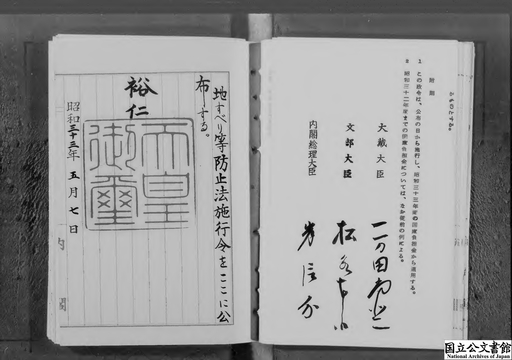 るものとする。
附則
1 この政令は、公布の日から施行し、昭和三十三年度の国庫負担金から適用する。
2 昭和三十二年度までの国庫負担金については、なお従前の例による。
大蔵大臣 一万田尚登
文部大臣 松永東
内閣総理大臣 岸信介
地すべり等防止法施行令をここに公
布する。
裕仁
天皇
御璽
昭和三十三年五月七日
国立公文書館
National Archives of Japan